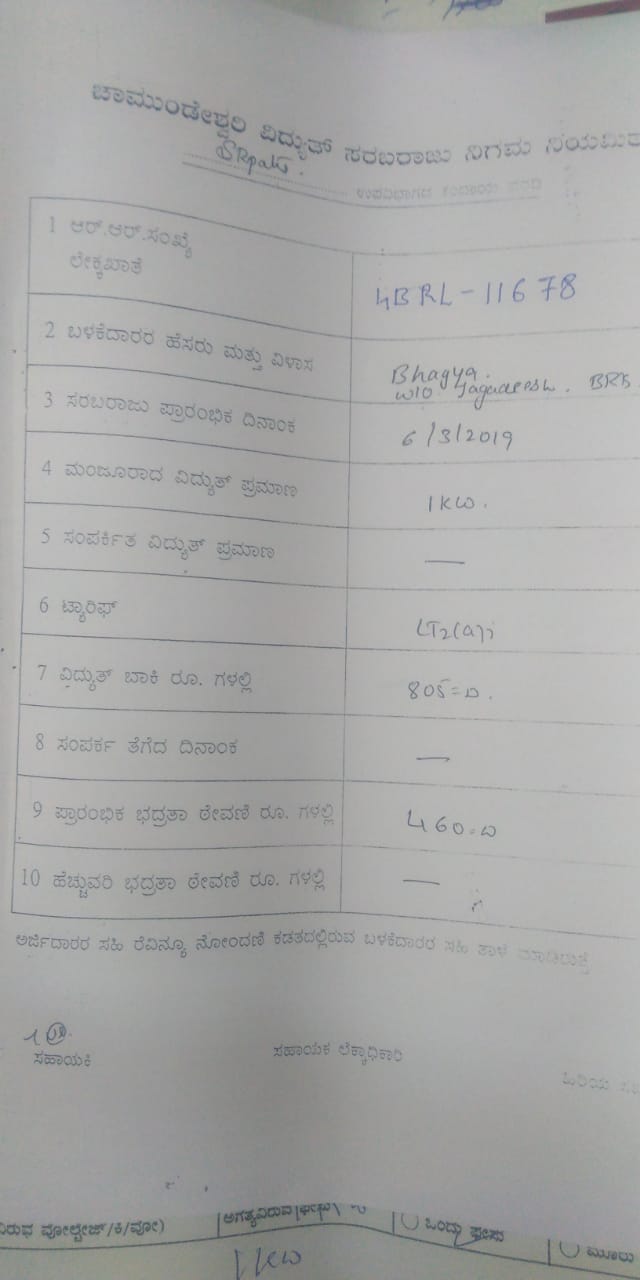 ಚಾಮುಂಡೇಶ್ವರಿ ವಿದ್ಯುತ್ ಸರಬರಾಜು ನಿಗಮ ನಿಯಮಿತ
ಉಪವಿಭಾಗದ ಕಂದಾಯ ವರದಿ
1 ಆರ್.ಆರ್.ಸಂಖ್ಯೆ
ಲೇಕ್ಕಖಾತೆ
4BRL-11678
2 ಬಳಕೆದಾರರ ಹೆಸರು ಮತ್ತು ವಿಳಾಸ
Bhagya.
w/o Jagadeesh. BRK
3 ಸರಬರಾಜು ಪ್ರಾರಂಭಿಕ ದಿನಾಂಕ
6/3/2019
4 ಮಂಜೂರಾದ ವಿದ್ಯುತ್ ಪ್ರಮಾಣ
1KW.
5 ಸಂಪರ್ಕಿತ ವಿದ್ಯುತ್ ಪ್ರಮಾಣ
—
6 ಟ್ಯಾರಿಫ್
LT2(a)i
7 ವಿದ್ಯುತ್ ಬಾಕಿ ರೂ. ಗಳಲ್ಲಿ
805=00.
8 ಸಂಪರ್ಕ ತೆಗೆದ ದಿನಾಂಕ
—
9 ಪ್ರಾರಂಭಿಕ ಭದ್ರತಾ ಠೇವಣಿ ರೂ. ಗಳಲ್ಲಿ
460=00
10 ಹೆಚ್ಚುವರಿ ಭದ್ರತಾ ಠೇವಣಿ ರೂ. ಗಳಲ್ಲಿ
—
ಅರ್ಜಿದಾರರ ಸಹಿ ರೆವಿನ್ಯೂ ನೋಂದಣಿ ಕಡತದಲ್ಲಿರುವ ಬಳಕೆದಾರರ ಸಹಿ ತಾಳೆ ಮಾಡಿರುತ್ತೆ
ಸಹಾಯಕಿ
ಸಹಾಯಕ ಲೆಕ್ಕಾಧಿಕಾರಿ
ಹಿರಿಯ
ವಿರುವ ವೋಲ್ಟೇಜ್/ಕಿ/ವೋ)
ಅಗತ್ಯವಿರುವ
ಒಂದು ಫೇಸು
ಮೂರು
1KW